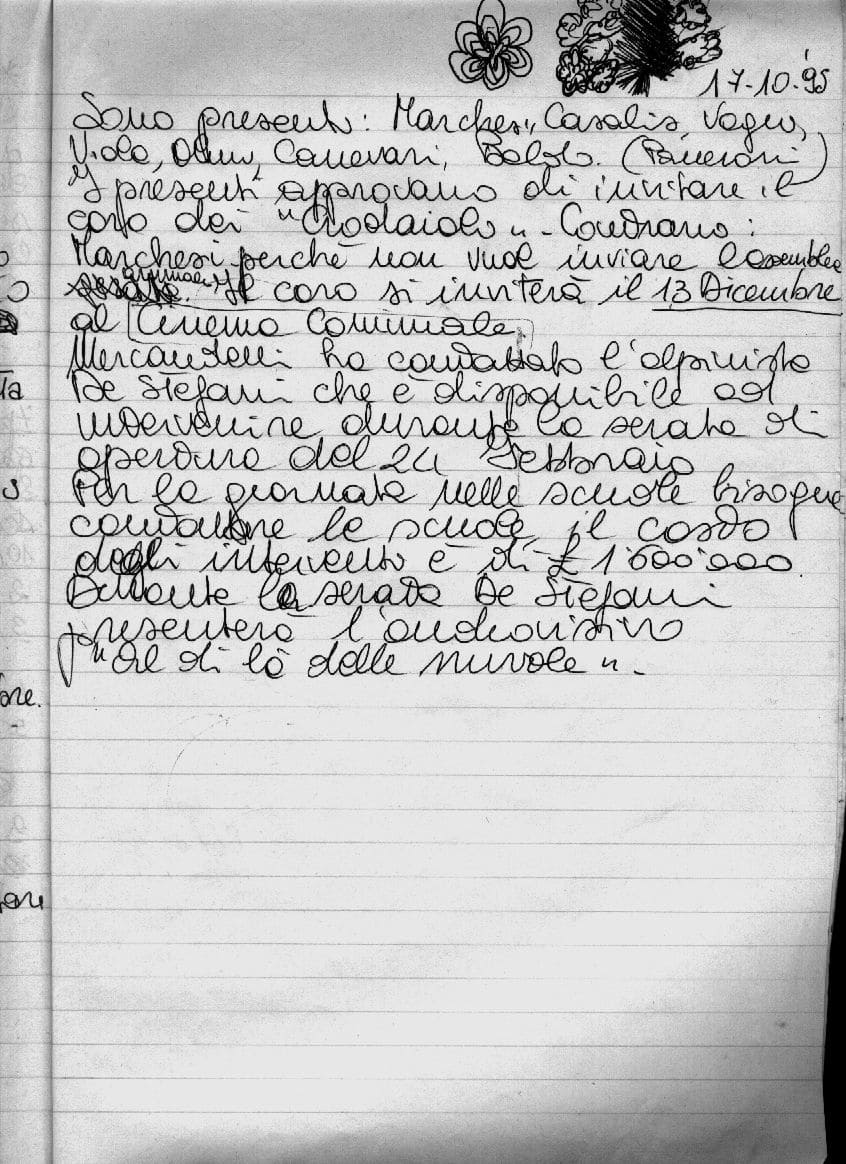 17-10-'95
Sono presenti: Marchesi, Casalis, Vagni,
Viola, Olmi, Canevari, (Panceroni)
I presenti approvano di invitare il
coro dei "Crodaioli" - Contrario:
Marchesi perchè non vuol inviare l'assemblea
annuale. Il coro si inviterà il 13 Dicembre
al Cinema Comunale.
Mercandelli ha contattato l'alpinista
De Stefani che è disponibile ad
intervenire durante la serata di
apertura del 24 Febbraio
Per la giornata nelle scuole bisogna
contattare le scuole, il costo
degli intervento è di £ 1'600'000
la serata De Stefani
presenterà l'audiovisivo
"Al di là delle nuvole".
one.